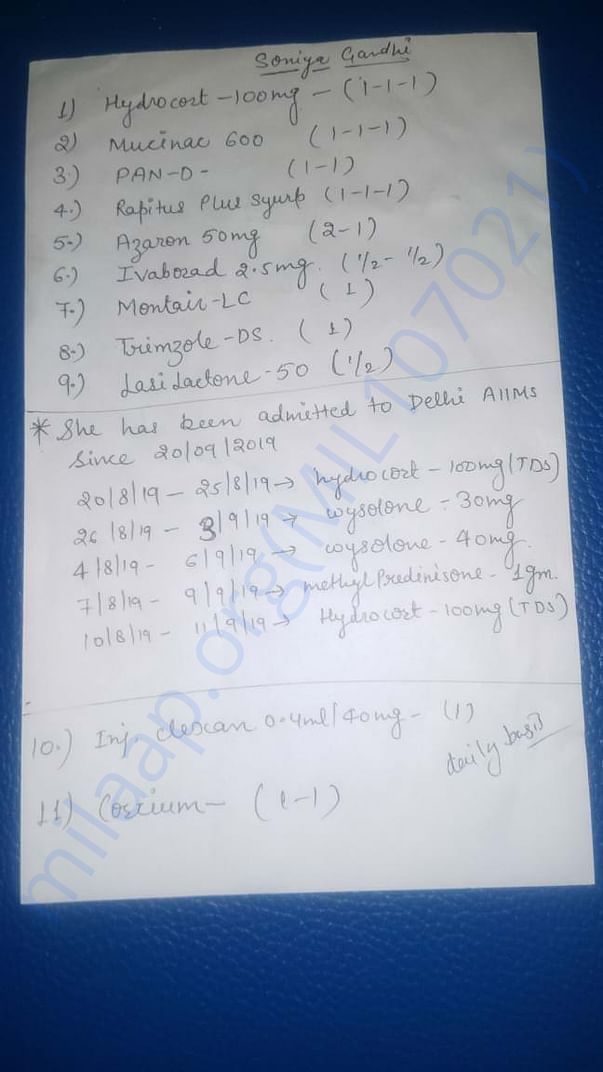 Soniya Gandhi
1) Hydrocort - 100mg - (1-1-1)
2) Mucinac 600 (1-1-1)
3.) PAN-D - (1-1)
4.) Rapitus Plus Syurp (1-1-1)
5.) Azaron 50mg (2-1)
6.) Ivabozad 2.5mg. (1/2 - 1/2)
7.) Montair-LC (1)
8.) Trimzole-DS. (1)
9.) Lasilactone-50 (1/2)
* She has been admitted to Delhi AIIMS
Since 20/09/2019
20/8/19 - 25/8/19 → hydrocort - 100mg (TDS)
26/8/19 - 3/9/19 → wysolone - 30mg
4/8/19 - 6/9/19 → wysolone - 40mg.
7/8/19 - 9/9/19 → methyl Predinisone - 1gm.
10/8/19 - 11/9/19 → Hydrocort - 100mg (TDS)
10.) Inj. clexan 0.4ml/40mg - (1)
daily basis
11) (1-1)
milaap.org(MIL107021)